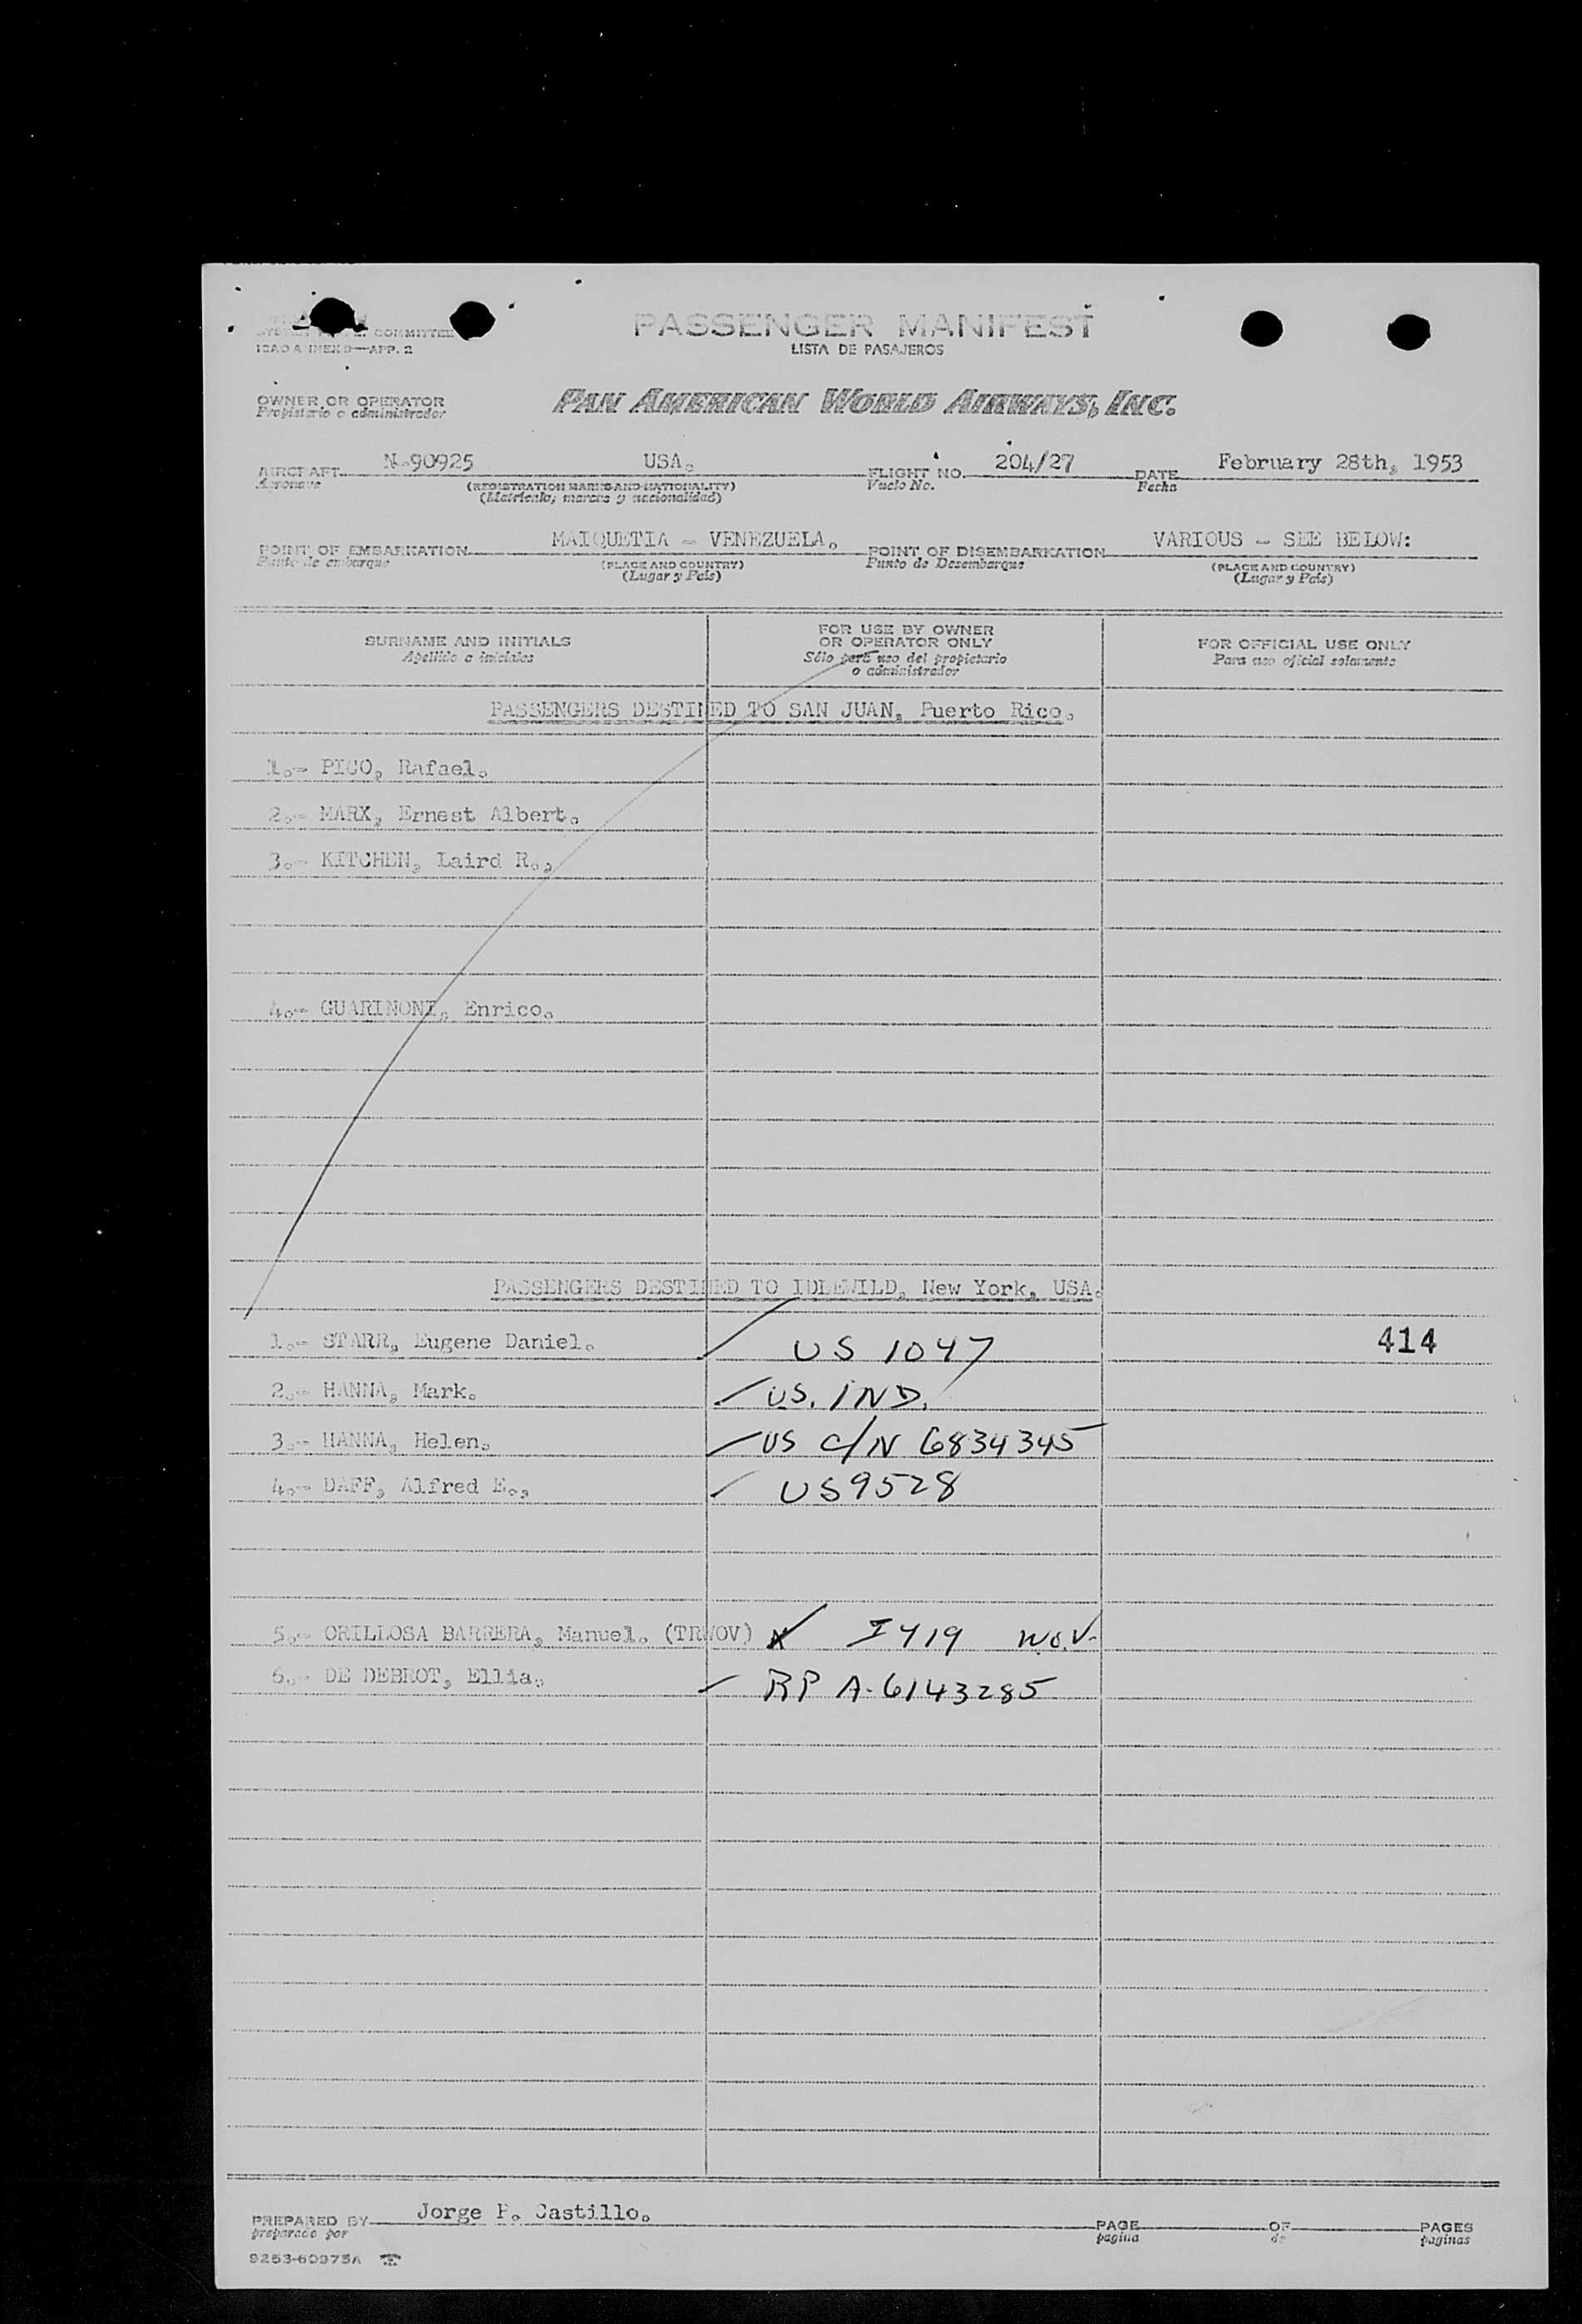 COMMITTEE
ICAO ANNEX 9—APP. 2
PASSENGER MANIFEST
LISTA DE PASAJEROS
OWNER OR OPERATOR
Propietario o administrador
PAN AMERICAN WORLD AIRWAYS, INC.
AIRCRAFT N-90925 USA. FLIGHT NO. 204/27 DATE February 28th, 1953
Aeronave (REGISTRATION MARKS AND NATIONALITY) Vuelo No. Fecha
(Matrícula, marcas y nacionalidad)
POINT OF EMBARKATION MAIQUETIA - VENEZUELA. POINT OF DISEMBARKATION VARIOUS - SEE BELOW:
Punto de embarque (PLACE AND COUNTRY) Punto de Desembarque (PLACE AND COUNTRY)
(Lugar y País) (Lugar y País)
SURNAME AND INITIALS FOR USE BY OWNER OR OPERATOR ONLY FOR OFFICIAL USE ONLY
Apellido e iniciales Sólo para uso del propietario o administrador Para uso oficial solamente
PASSENGERS DESTINED TO SAN JUAN, Puerto Rico.
1.- PICO, Rafael.
2.- MARX, Ernest Albert.
3.- KITCHEN, Laird R.,
4.- GUARINONI, Enrico.
PASSENGERS DESTINED TO IDLEWILD, New York, USA.
1.- STARR, Eugene Daniel. US 1047 414
2.- HANNA, Mark. US. IND.
3.- HANNA, Helen. US C/N 6834345
4.- DAFF, Alfred E., US 9528
5.- ORILLOSA BARRERA, Manuel. (TRWOV) I 419 W.O.V.
6.- DE DEBROT, Ellia. RP A-6143285
PREPARED BY Jorge P. Castillo. PAGE OF PAGES
preparado por pagina de paginas
9253-60975A